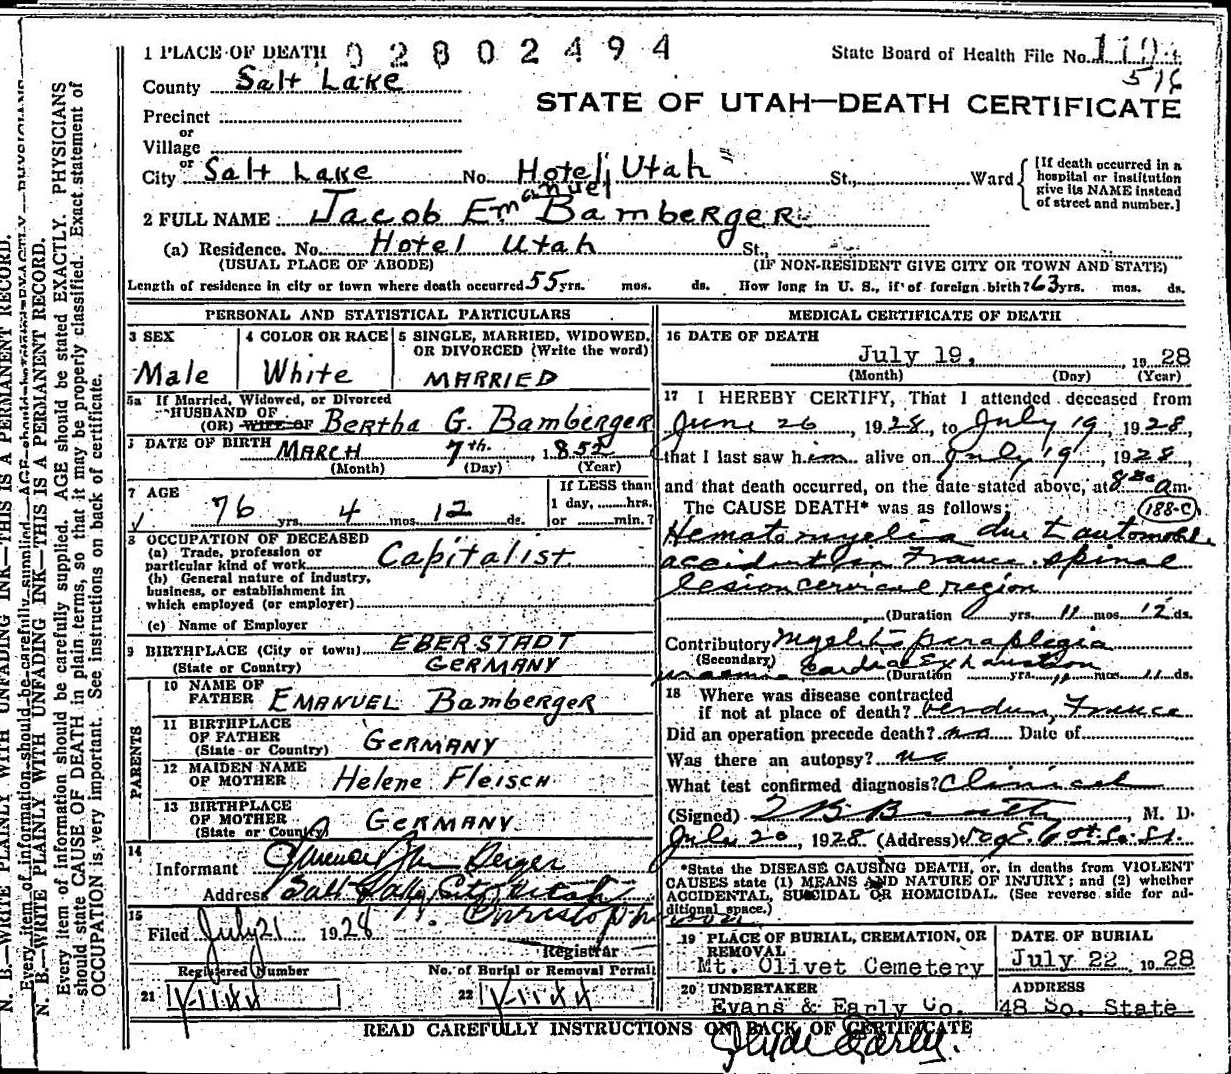 1 PLACE OF DEATH 02802494
State Board of Health File No. 1194
516
County Salt Lake
STATE OF UTAH—DEATH CERTIFICATE
Precinct
or
Village
or
City Salt Lake No. Hotel Utah St., Ward
[If death occurred in a
hospital or institution
give its NAME instead
of street and number.]
2 FULL NAME Jacob Emanuel Bamberger
(a) Residence. No. Hotel Utah St.,
(USUAL PLACE OF ABODE) (IF NON-RESIDENT GIVE CITY OR TOWN AND STATE)
Length of residence in city or town where death occurred 55 yrs. mos. ds. How long in U. S., if of foreign birth? 63 yrs. mos. ds.
PERSONAL AND STATISTICAL PARTICULARS
3 SEX
Male
4 COLOR OR RACE
White
5 SINGLE, MARRIED, WIDOWED,
OR DIVORCED (Write the word)
MARRIED
5a If Married, Widowed, or Divorced
HUSBAND OF
(OR) WIFE OF Bertha G. Bamberger
DATE OF BIRTH MARCH 7th. 1852
(Month) (Day) (Year)
7 AGE
76 yrs. 4 mos. 12 ds.
If LESS than
1 day, ......hrs.
or ......min.?
8 OCCUPATION OF DECEASED
(a) Trade, profession or
particular kind of work Capitalist
(b) General nature of Industry,
business, or establishment in
which employed (or employer)
(c) Name of Employer
9 BIRTHPLACE (City or town) EBERSTADT
(State or Country) GERMANY
PARENTS
10 NAME OF
FATHER EMANUEL Bamberger
11 BIRTHPLACE
OF FATHER
(State or Country) GERMANY
12 MAIDEN NAME
OF MOTHER Helene Fleisch
13 BIRTHPLACE
OF MOTHER
(State or Country) GERMANY
14
Informant Clarence Bamberger
Address Salt Lake City Utah
15
Filed July 21 1928
Registrar
Registered Number No. of Burial or Removal Permit
21 Y-1144 22 Y-1144
MEDICAL CERTIFICATE OF DEATH
16 DATE OF DEATH
July 19, 1928
(Month) (Day) (Year)
17 I HEREBY CERTIFY, That I attended deceased from
June 26, 1928, to July 19, 1928,
that I last saw him alive on July 19, 1928
and that death occurred, on the date stated above, at 8 30 a m.
The CAUSE DEATH* was as follows: 188-C
Hematomyelia due to automobile
accident in France. spinal
lesion cervical region
(Duration 0 yrs. 11 mos. 12 ds.
Contributory Myelitis paraplegia
(Secondary)
uraemia Cardiac Exhaustion
(Duration yrs. 11 mos. 11 ds.
18 Where was disease contracted
if not at place of death? Verdun, France
Did an operation precede death? no Date of
Was there an autopsy? no
What test confirmed diagnosis? Clinical
(Signed) , M. D.
July 20, 1928 (Address)
*State the DISEASE CAUSING DEATH, or, in deaths from VIOLENT
CAUSES state (1) MEANS AND NATURE OF INJURY; and (2) whether
ACCIDENTAL, SUICIDAL OR HOMICIDAL. (See reverse side for ad-
ditional space.)
19 PLACE OF BURIAL, CREMATION, OR
REMOVAL
Mt. Olivet Cemetery
DATE OF BURIAL
July 22 1928
20 UNDERTAKER
Evans & Early Co.
ADDRESS
48 So. State
READ CAREFULLY INSTRUCTIONS ON BACK OF CERTIFICATE
Clyde Early.
N. B.—WRITE PLAINLY WITH UNFADING INK—THIS IS A PERMANENT RECORD.
Every item of information should be carefully supplied. AGE should be stated EXACTLY. PHYSICIANS
N. B.—WRITE PLAINLY WITH UNFADING INK—THIS IS A PERMANENT RECORD.
Every item of information should be carefully supplied. AGE should be stated EXACTLY. PHYSICIANS
should state CAUSE OF DEATH in plain terms, so that it may be properly classified. Exact statement of
OCCUPATION is very important. See instructions on back of certificate.